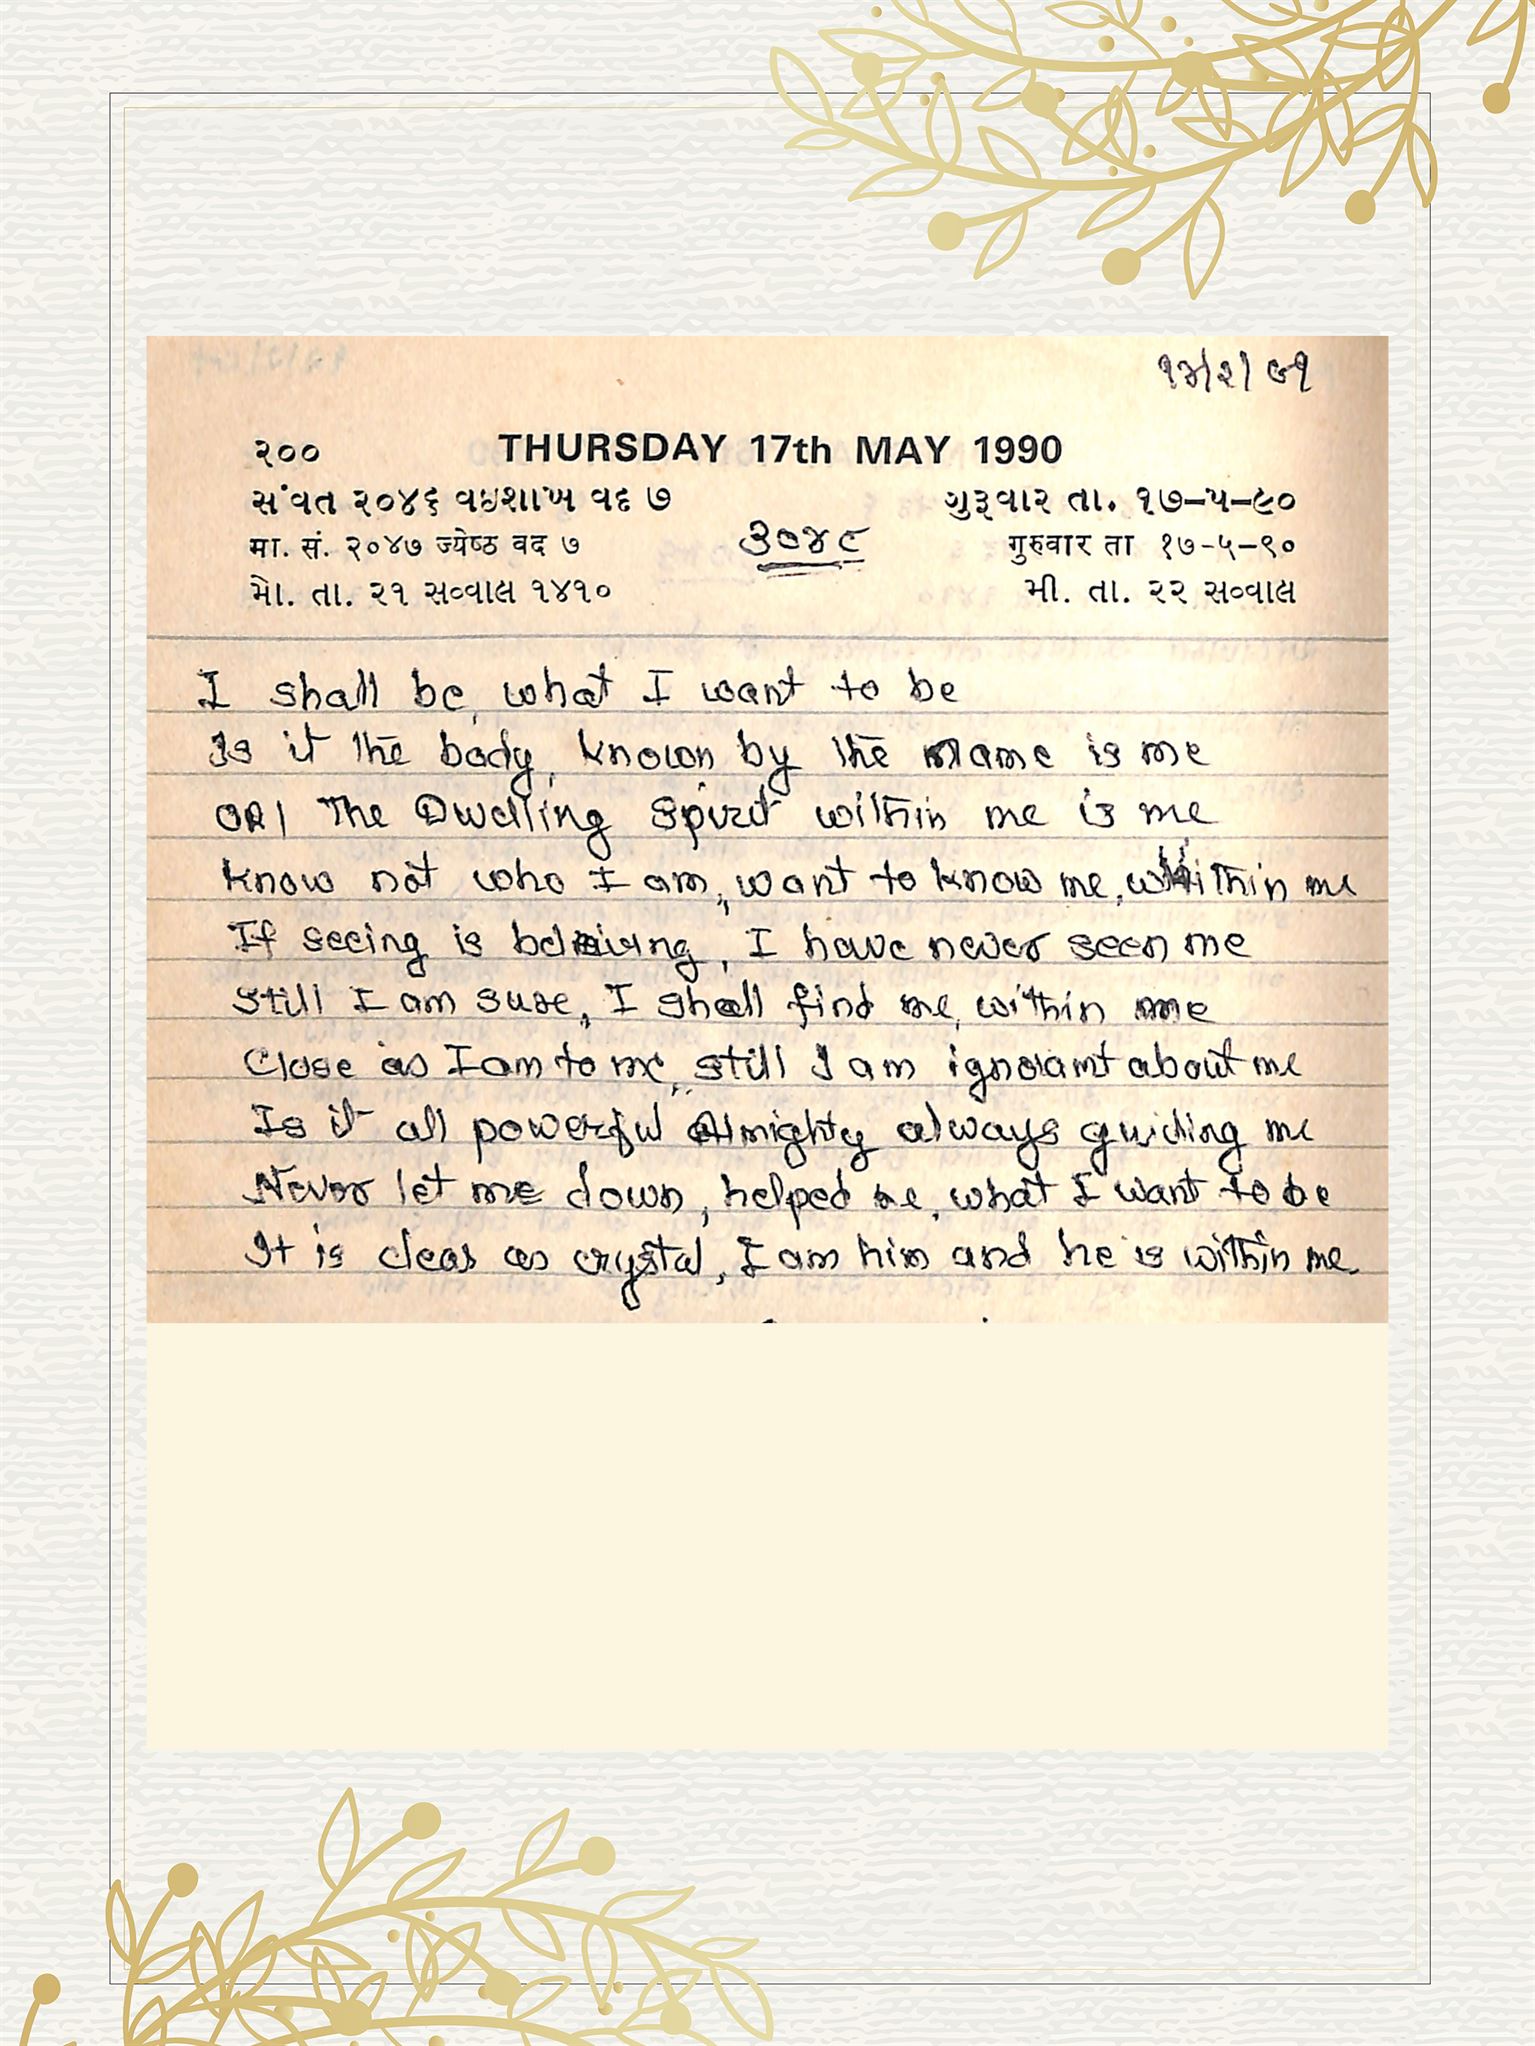 ૧૩/૨/૯૧
૨૦૦ THURSDAY 17th MAY 1990
સંવત ૨૦૪૬ વઇશાખ વદ ૭ ગુરૂવાર તા. ૧૭-૫-૯૦
मा. सं. २०४७ ज्येष्ठ वद ७ ૩૦૪૯ गुरुवार ता १७-५-९०
મો. તા. ૨૧ સવ્વાલ ૧૪૧૦ મી. તા. ૨૨ સવ્વાલ
I shall be, what I want to be
Is it the body, known by the name is me
OR! The Dwelling Spirit within me is me
know not who I am, want to know me, within me
If seeing is believing, I have never seen me
still I am sure, I shall find me, within me
Close as I am to me, still I am ignorant about me
Is it all powerful Almighty always guiding me
Never let me down, helped me, what I want to be
It is clear as crystal, I am him and he is within me.